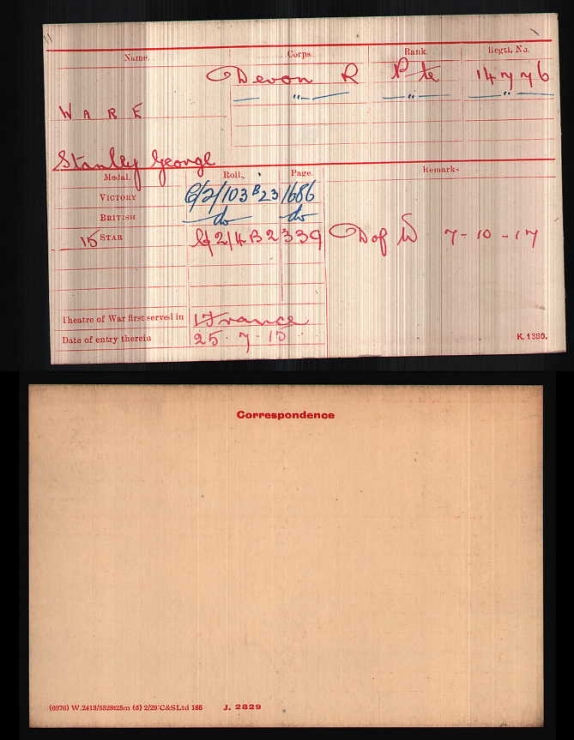 Name. Corps. Rank. Regtl. No.
Devon R Pte 14776
" " "
WARE
Stanley George
Medal. Roll. Page. Remarks
VICTORY G/2/103B23 1686
BRITISH do do
15 STAR G/2/4B2 339 D of W 7-10-17
Theatre of War first served in (1) France
Date of entry therein 25.7.15
K. 1380.
Correspondence
(6376) W.2413/ 2/29 C&SLtd J. 2829